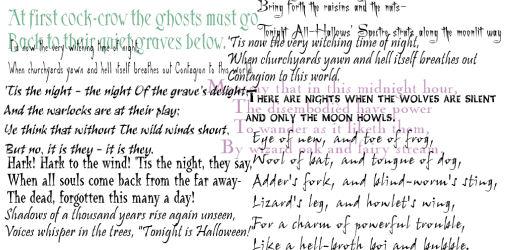 At first cock-crow the ghosts must go
Back to their quiet graves below.
'Tis now the very witching time of night,
When churchyards yawn and hell itself breathes out Contagion to this world.
'Tis the night - the night Of the grave's delight,
And the warlocks are at their play;
Ye think that without The wild winds shout,
But no, it is they - it is they.
Hark! Hark to the wind! 'Tis the night, they say,
When all souls come back from the far away-
The dead, forgotten this many a day!
Shadows of a thousand years rise again unseen,
Voices whisper in the trees, "Tonight is Halloween!"
Bring forth the raisins and the nuts-
Tonight All-Hallows' Spectre struts along the moonlit way
'Tis now the very witching time of night,
When churchyards yawn and hell itself breathes out
Contagion to this world.
say that in this midnight hour,
The disembodied have power
To wander as it liketh them,
By wizard oak and fairy stream.
There are nights when the wolves are silent
and only the moon howls.
Eye of newt, and toe of frog,
Wool of bat, and tongue of dog,
Adder's fork, and blind-worm's sting,
Lizard's leg, and howlet's wing,
For a charm of powerful trouble,
Like a hell-broth boi and bubble.